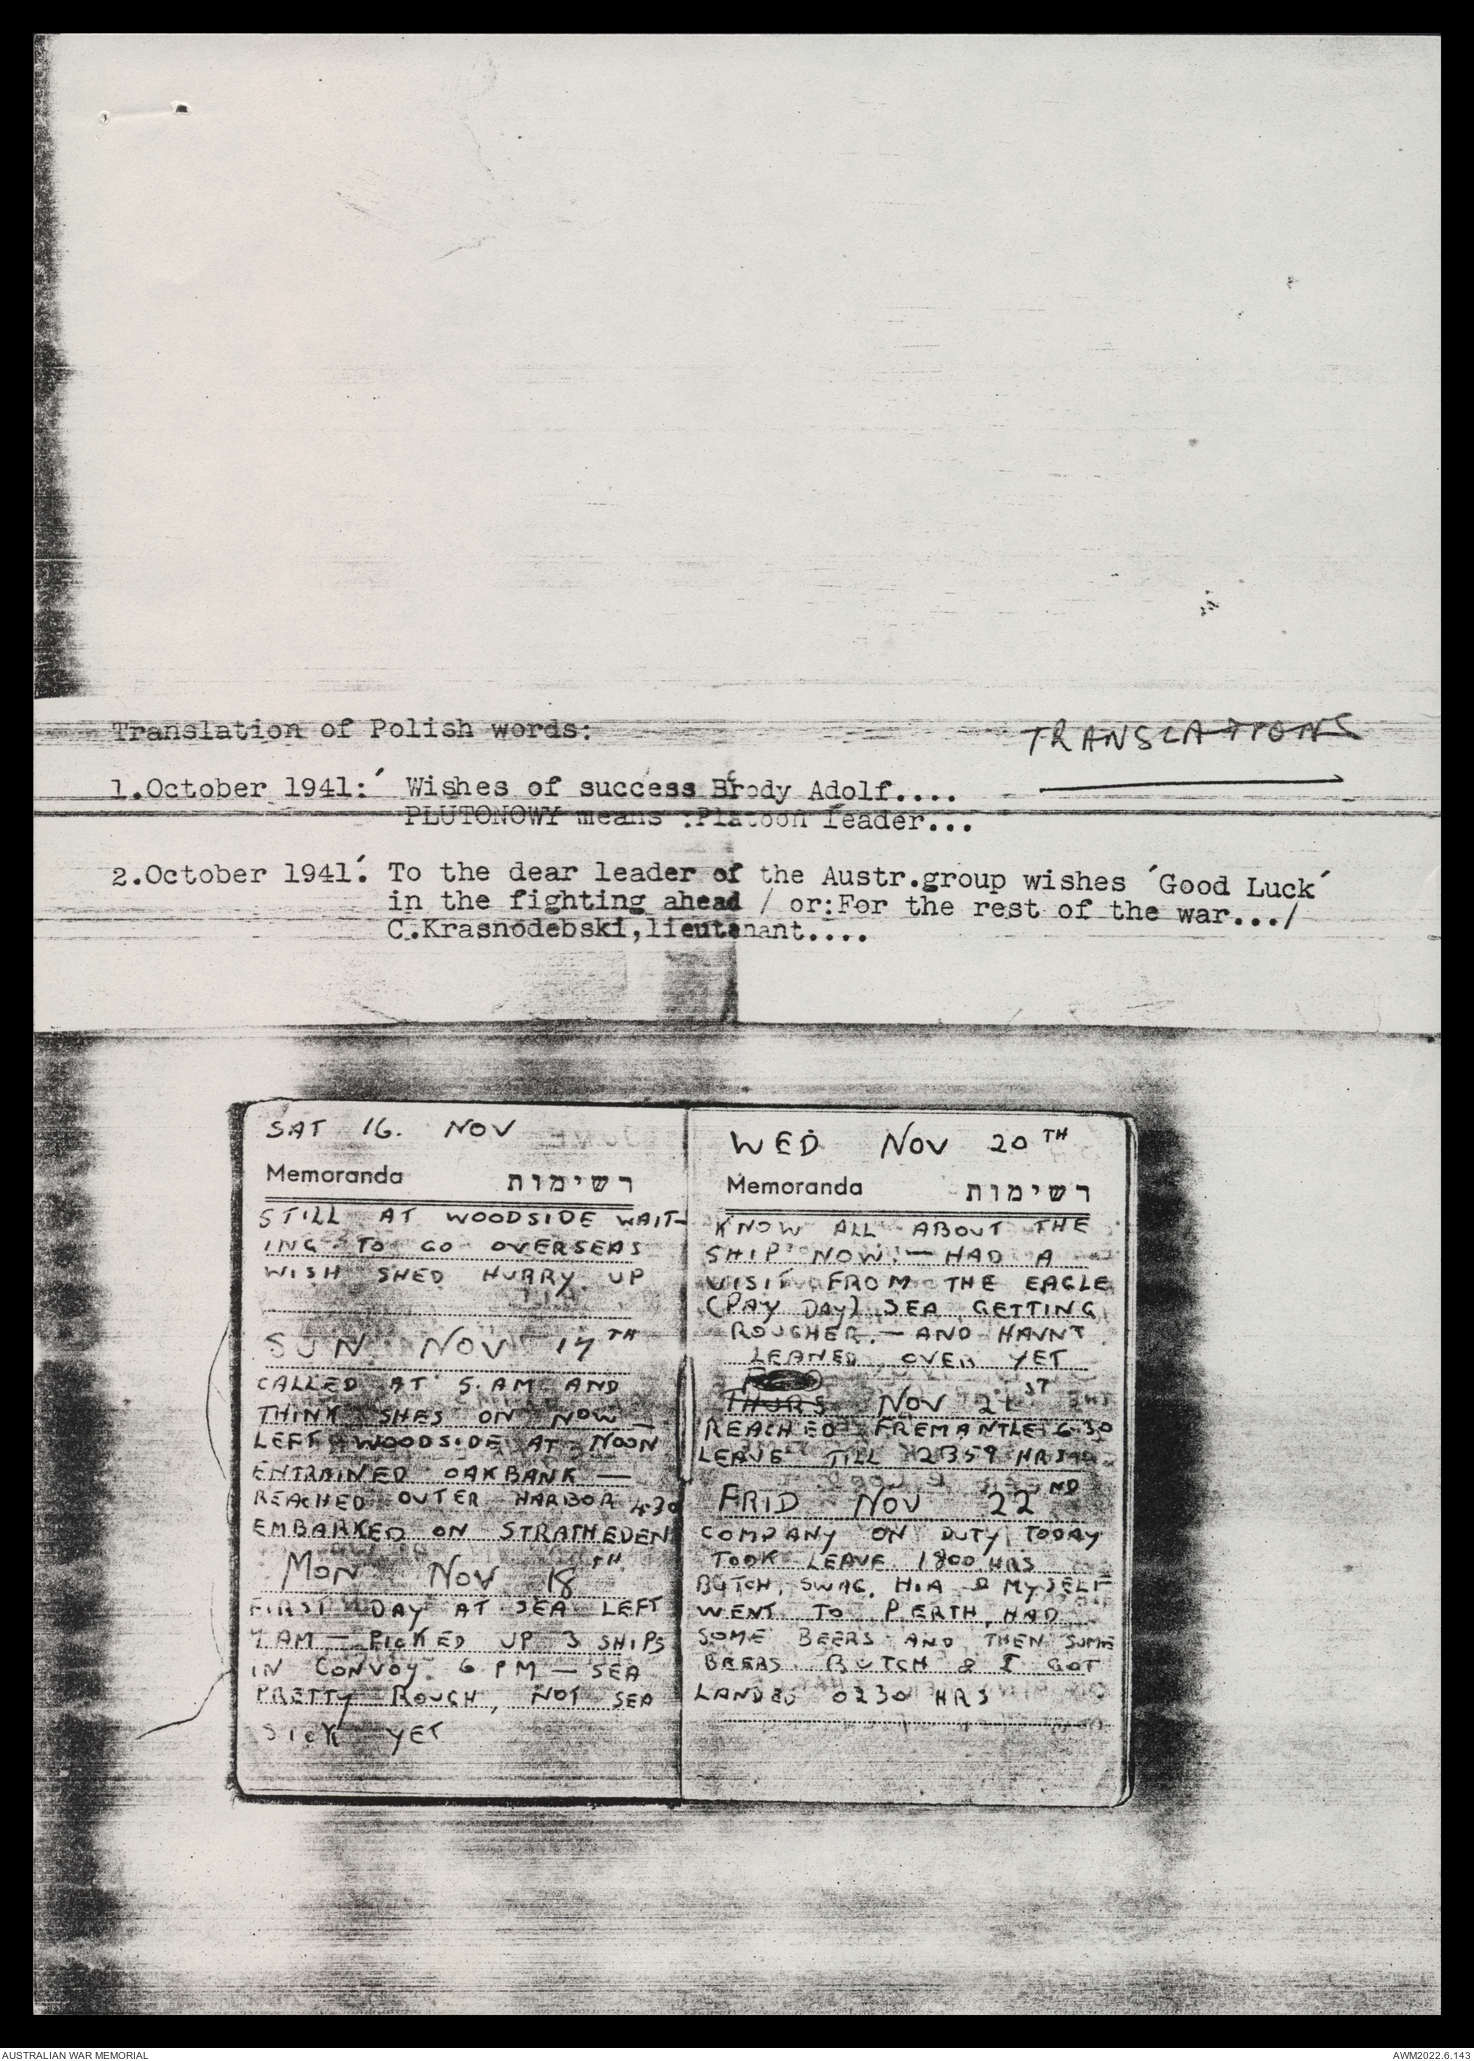 Translation of Polish words:
TRANSLATIONS
1.October 1941:´ Wishes of success Brody Adolf....
PLUTONOWY means :Platoon leader...
2.October 1941:´ To the dear leader of the Austr.group wishes ´Good Luck´
in the fighting ahead / or:For the rest of the war.../
C.Krasnodebski,lieutenant....
SAT 16. NOV
Memoranda רשימות
STILL AT WOODSIDE WAIT-
ING TO GO OVERSEAS
WISH SHED HURRY UP
SUN NOV 17TH
CALLED AT 5.AM AND
THINK SHES ON NOW —
LEFT WOODSIDE AT NOON
ENTRAINED OAKBANK —
REACHED OUTER HARBOR 430
EMBARKED ON STRATHEDEN
MON NOV 18TH
FIRST DAY AT SEA LEFT
7 AM — PICKED UP 3 SHIPS
IN CONVOY. 6 PM — SEA
PRETTY ROUGH, NOT SEA
SICK YET
WED NOV 20TH
Memoranda רשימות
KNOW ALL ABOUT THE
SHIP NOW. — HAD A
VISIT FROM THE EAGLE
(PAY DAY) SEA GETTING
ROUGHER. — AND HAVNT
LEANED OVER YET
THURS NOV 21ST
REACHED FREMANTLE 6.30
LEAVE TILL 2359 HRS
FRID NOV 22ND
COMPANY ON DUTY TODAY
TOOK LEAVE 1800 HRS
BUTCH, SWAG, & MYSELF
WENT TO PERTH, HAD
SOME BEERS AND THEN SOME
BEERS. BUTCH & I GOT
LANDED 0230 HRS
AUSTRALIAN WAR MEMORIAL
AWM2022.6.143